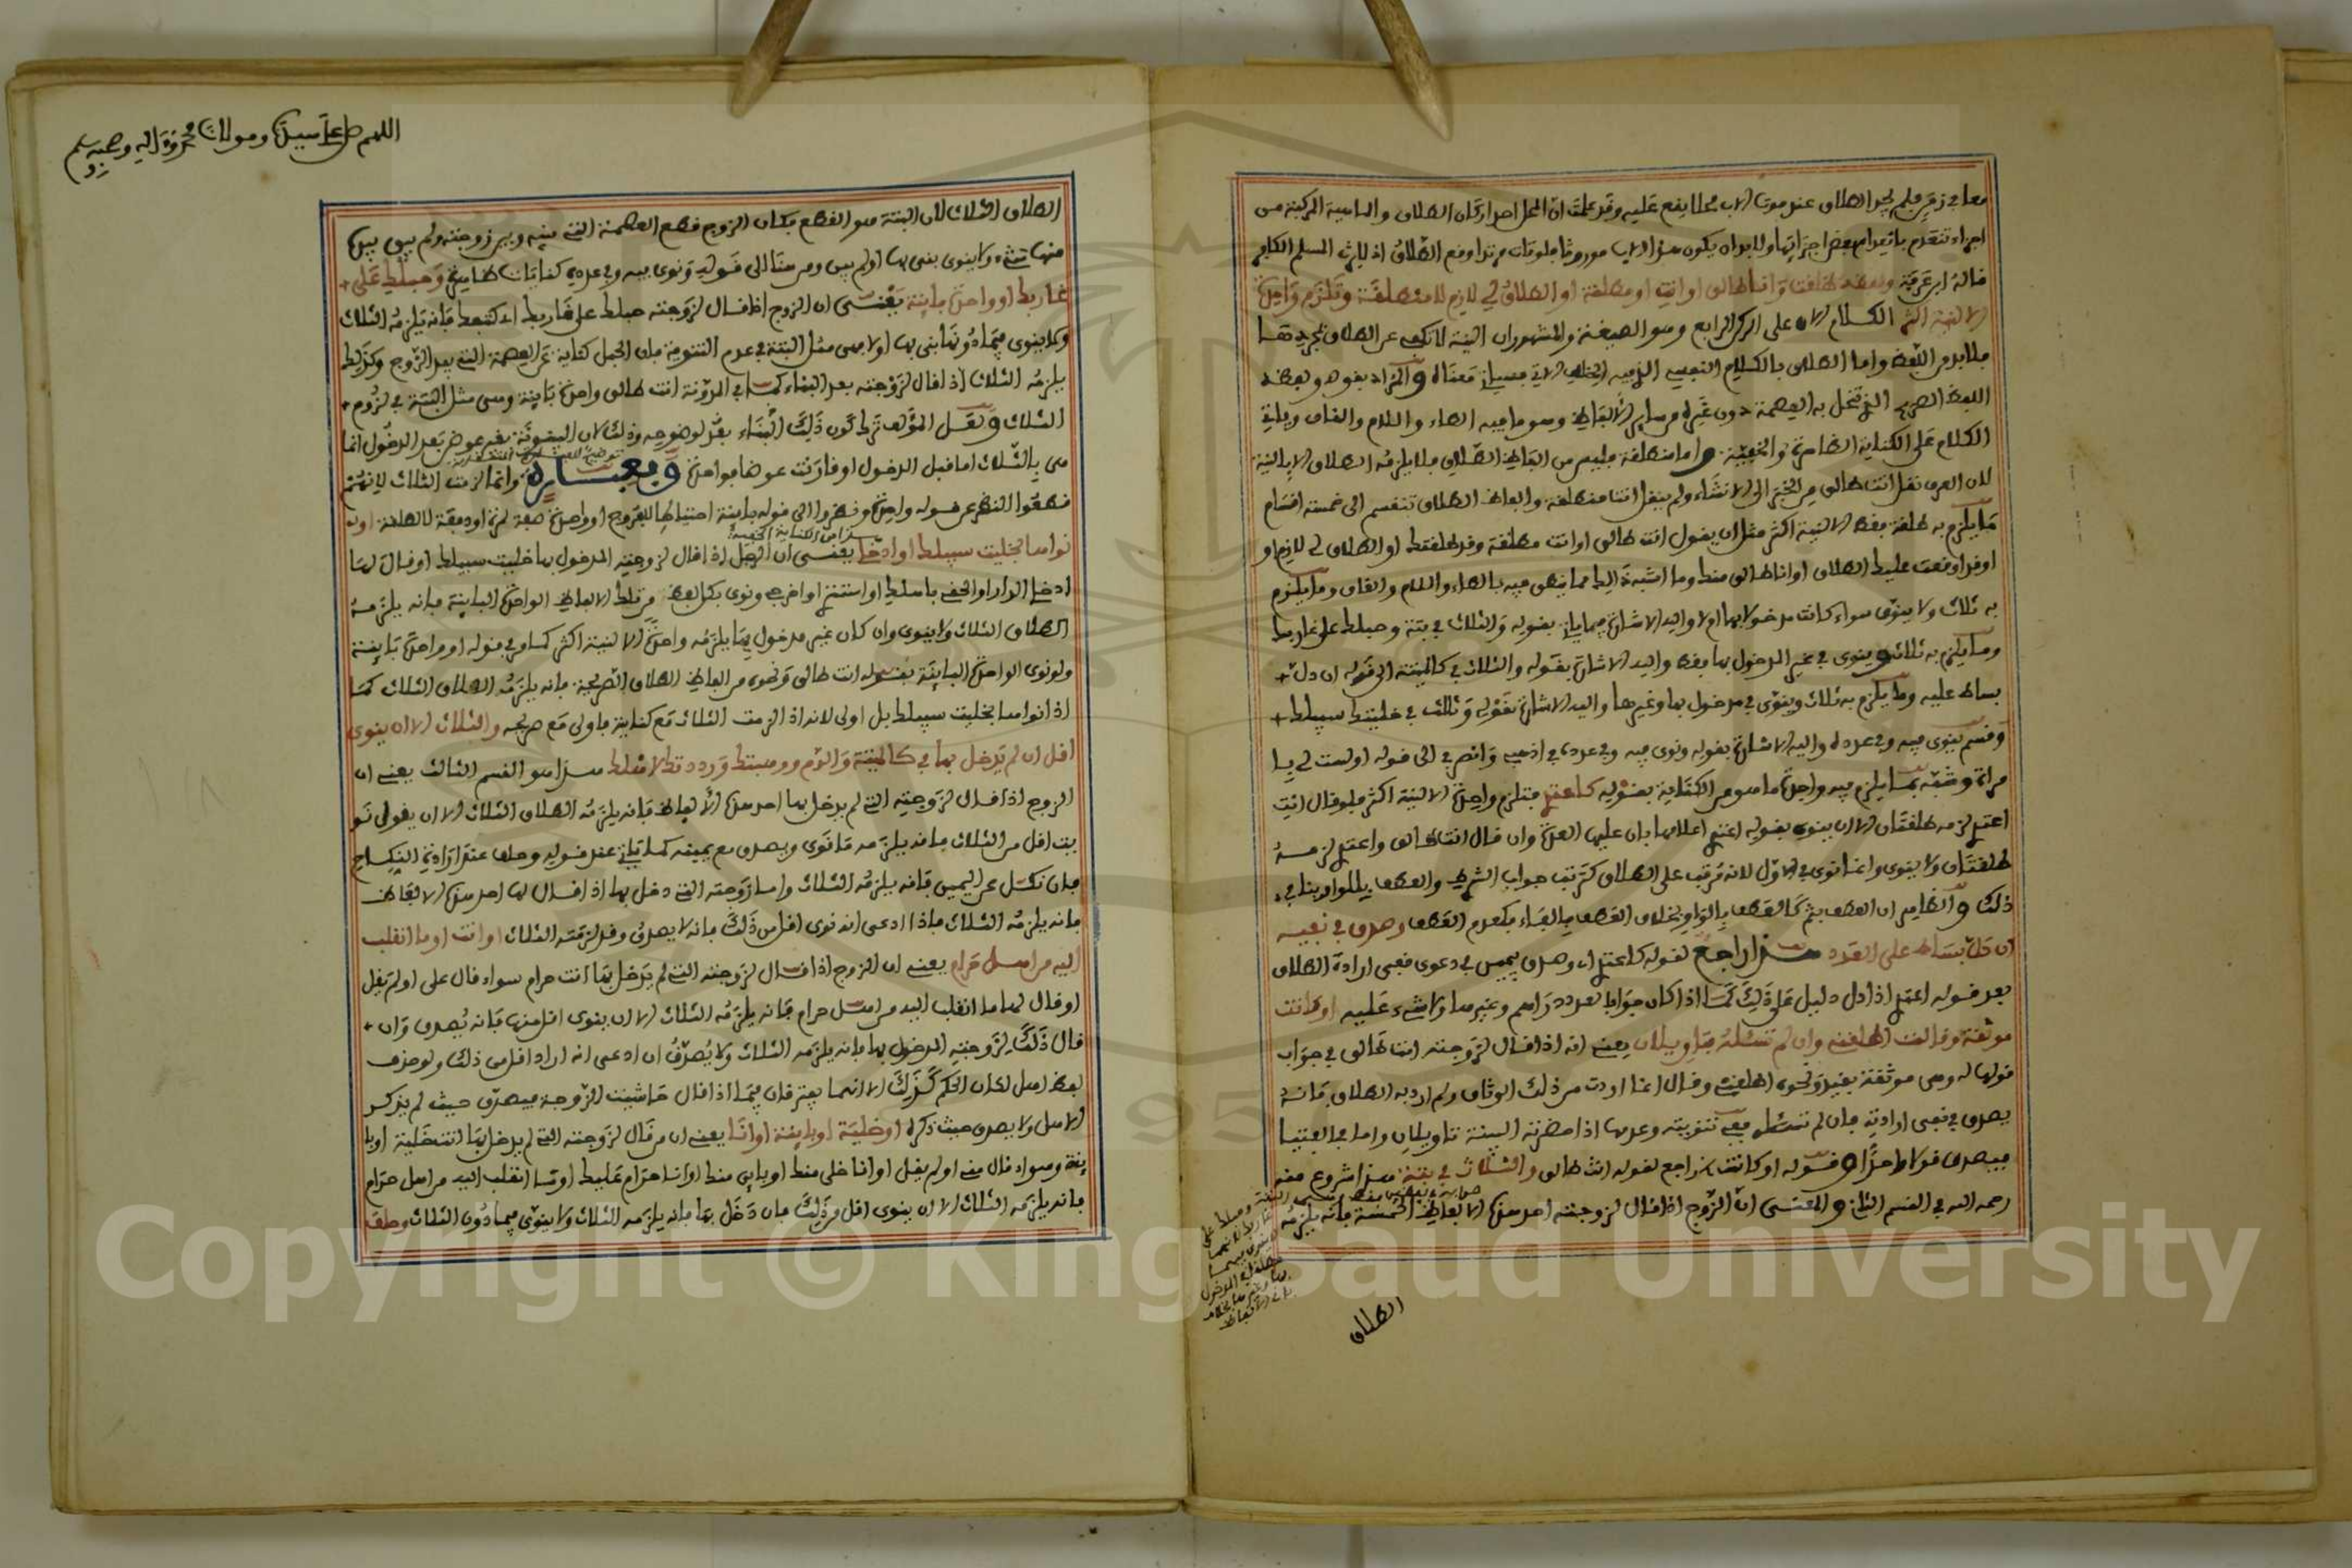 معا في زمن فلم يجد الطلاق عند موت الاب محلا يقع عليه وقد علمت ان المحل احد اركان الطلاق والماهية المركبة من
اجزاء تنعدم بانعدام بعض اجزائها ولا بد ان يكون هذا الاب موروثا فلو مات مرتدا وقع الطلاق اذ لا يرث المسلم الكافر
قاله ابن عرفة ولفظه طلقت وانا طالق او انت او مطلقة او الطلاق لي لازم لا منطلقة وتلزم واحدة
الا لنية اكثر الكلام الان على الركن الرابع وهو الصيغة والمشهور ان النية لا تكفي عن الطلاق بمجردها
فلا بد من اللفظ واما الطلاق بالكلام النفسي الذي فيه الخلاف الاتي فسياتي معناه والمراد بقوله ولفظه
اللفظ الصريح الذي تنحل به العصمة دون غيره من ساير الالفاظ وهو ما فيه الطاء واللام والقاف وياتي
الكلام على الكناية الظاهرة والخفية واما منطلقة فليس من الفاظ الطلاق فلا يلزمه الطلاق الا بالنية
لان العرف نقل انت طالق من الخبر الى الانشاء ولم ينقل انت منطلقة والفاظ الطلاق تنقسم الى خمسة اقسام
ما يلزم به طلقة فقط الا لنية اكثر مثل ان يقول انت طالق او انت مطلقة وقد طلقتك او الطلاق لي لازم او
او قد اوقعت عليك الطلاق او انا طالق منك وما اشبه ذلك مما ينطق فيه بالطاء واللام والقاف وما يلزم
به ثلاث ولا ينوى سواء كانت مدخولا بها ام لا واليه الاشارة فيما ياتي بقوله والثلاث في بتة وحبلك على غاربك
وما يلزم به ثلاث وينوى في غير المدخول بها فقط واليه الاشارة بقوله والثلاث في كالميتة الى قوله ان دل
بساط عليه وما يلزم به ثلاث وينوى في مدخول بها وغيرها واليه الاشارة بقوله وثلاث في خليت سبيلك
وقسم ينوى فيه وفي عدده واليه الاشارة بقوله ونوى فيه وفي عدده في اذهبي وانصرفي الى قوله او لست لي بامـ
مراة وشبه بما يلزم فيه واحدة ما هو من الكناية بقوله كاعتدي فتلزم واحدة الا لنية اكثر فلو قال انت
اعتدي لزمه طلقتان الا ان ينوي بقوله اعتدي اعلامها بان عليها العدة وان قال انت طالق واعتدي لزمه
طلقتان ولا ينوى وانما نوى في الاول لانه مرتب على الطلاق كترتب جواب الشرط والعطف بالواو ينافي
ذلك والظاهر ان العطف بثم كالعطف بالواو بخلاف العطف بالفاء فكعدم العطف وصدق في نفيه
ان دل بساط على العدد هذا راجع لقوله كاعتدي اي وصدق بيمين في دعوى نفي ارادة الطلاق
بعد قوله اعتدي اذا دل دليل على ذلك كما اذا كان جوابا لعدد دراهم وغيرها ولا شيء عليه او كانت
موثقة وقالت اطلقني وان لم تسئله فتاويلان يعني انه اذا قال لزوجته انت طالق في جواب
قولها له وهي موثقة بقيد ونحوه اطلقني وقال انما اردت من ذلك الوثاق ولم ارد به الطلاق فانه
يصدق في نفي ارادته فان لم تسئله ففي تنويته وعدمها اذا حضرته البينة تاويلان واما في الفتيا
فيصدق قولا واحدا وقوله او كانت راجع لقوله انت طالق والثلاث في بتة هذا شروع منه
رحمه الله في القسم الثاني والمعنى ان الزوج اذا قال لزوجته احد هذه الالفاظ الخمسة فانه يلزمه
الطلاق
اللهم صل على سيدنا ومولانا محمد واله وصحبه وسلم
الطلاق الثلاث لان البتة هو القطع فكان الزوج قطع العصمة التي بينه وبين زوجته ولم يبق بيده
منها شيء ولا ينوى بنى بها او لم يبن ومن هنا الى قوله ونوى فيه وفي عدده كنايات ظاهرة وحبلك على
غاربك او واحدة باينة يعني ان الزوج اذا قال لزوجته حبلك على غاربك اي كتبعك فانه يلزمه الثلاث
ولا ينوى فيما دونها بنى بها او لا وهي مثل البتة في عدم التنوية فان الحبل كناية عن العصمة التي بيد الزوج وكذلك
يلزمه الثلاث اذا قال لزوجته بعد البناء كما في المدونة انت طالق واحدة باينة وهي مثل البتة في لزوم
الثلاث ولعل المؤلف ترك كون ذلك البناء بعد لوضوحه وذلك لان البينونة بغير عوض بعد الدخول انما
هي بالثلاث اما قبل الدخول او قارنت عوضا فواحدة وبعبارة وانما لزمت الثلاث لانهم
قطعوا النظر عن قوله واحدة ونظروا الى قوله باينة احتياطا للفروج او واحدة صفة لمرة او دفعة لا لطلقة او
هذا من الكناية الخفية
نواها بخليت سبيلك او ادخلي يعني ان الرجل اذا قال لزوجته المدخول بها خليت سبيلك او قال لها
ادخلي الدار او الحقي باهلك او استتري او اخرجي ونوى بكل لفظ من تلك الالفاظ الواحدة الباينة فانه يلزمه
الطلاق الثلاث ولا ينوى وان كان غير مدخول بها يلزمه واحدة الا لنية اكثر كما مر في قوله او واحدة باينة
ولو نوى الواحدة الباينة بقوله انت طالق ونحوه من الفاظ الطلاق الصريحة فانه يلزمه الطلاق الثلاث كما
اذا نواها بخليت سبيلك بل اولى لانه اذا لزمت الثلاث مع كناية فاولى مع صريحه والثلاث الا ان ينوي
اقل ان لم يدخل بها في كالميتة والدم ووهبتك ورددتك لاهلك هذا هو القسم الثالث يعني ان
الزوج اذا قال لزوجته التي لم يدخل بها احد هذه الالفاظ فانه يلزمه الطلاق الثلاث الا ان يقول نو
يت اقل من الثلاث فانه يلزمه ما نوى ويصدق مع يمينه كما ياتي عند قوله وحلف عند ارادة النكاح
فان نكل عن اليمين فانه يلزمه الثلاث واما زوجته التي دخل بها اذا قال لها احد هذه الالفاظ
فانه يلزمه الثلاث فاذا ادعى انه نوى اقل من ذلك فانه لا يصدق وقد لزمته الثلاث او انت او ما انقلب
اليه من اهل حرام يعني ان الزوج اذا قال لزوجته التي لم يدخل بها انت حرام سواء قال على او لم يقل
او قال لها ما انقلب اليه من اهل حرام فانه يلزمه الثلاث الا ان ينوي اقل منها فانه يصدق وان
قال ذلك لزوجته المدخول بها فانه يلزمه الثلاث ولا يصدق ان ادعى انه اراد اقل من ذلك ولو حذف
لفظ اهل لكان الحكم كذلك الا انهما يفترقان فيما اذا قال حاشيت الزوجة فيصدق حيث لم يذكر
الاهل ولا يصدق حيث ذكره او خلية او باينة او انا يعني ان من قال لزوجته التي لم يدخل بها انت خلية او با
ينة وسواء قال مني او لم يقل او انا خلي منك او باين منك او انا حرام عليك او ما انقلب اليه من اهل حرام
فانه يلزمه الثلاث الا ان ينوي اقل من ذلك فان دخل بها فانه يلزمه الثلاث ولا ينوى فيما دون الثلاث وحلف
Copyright © King Saud University